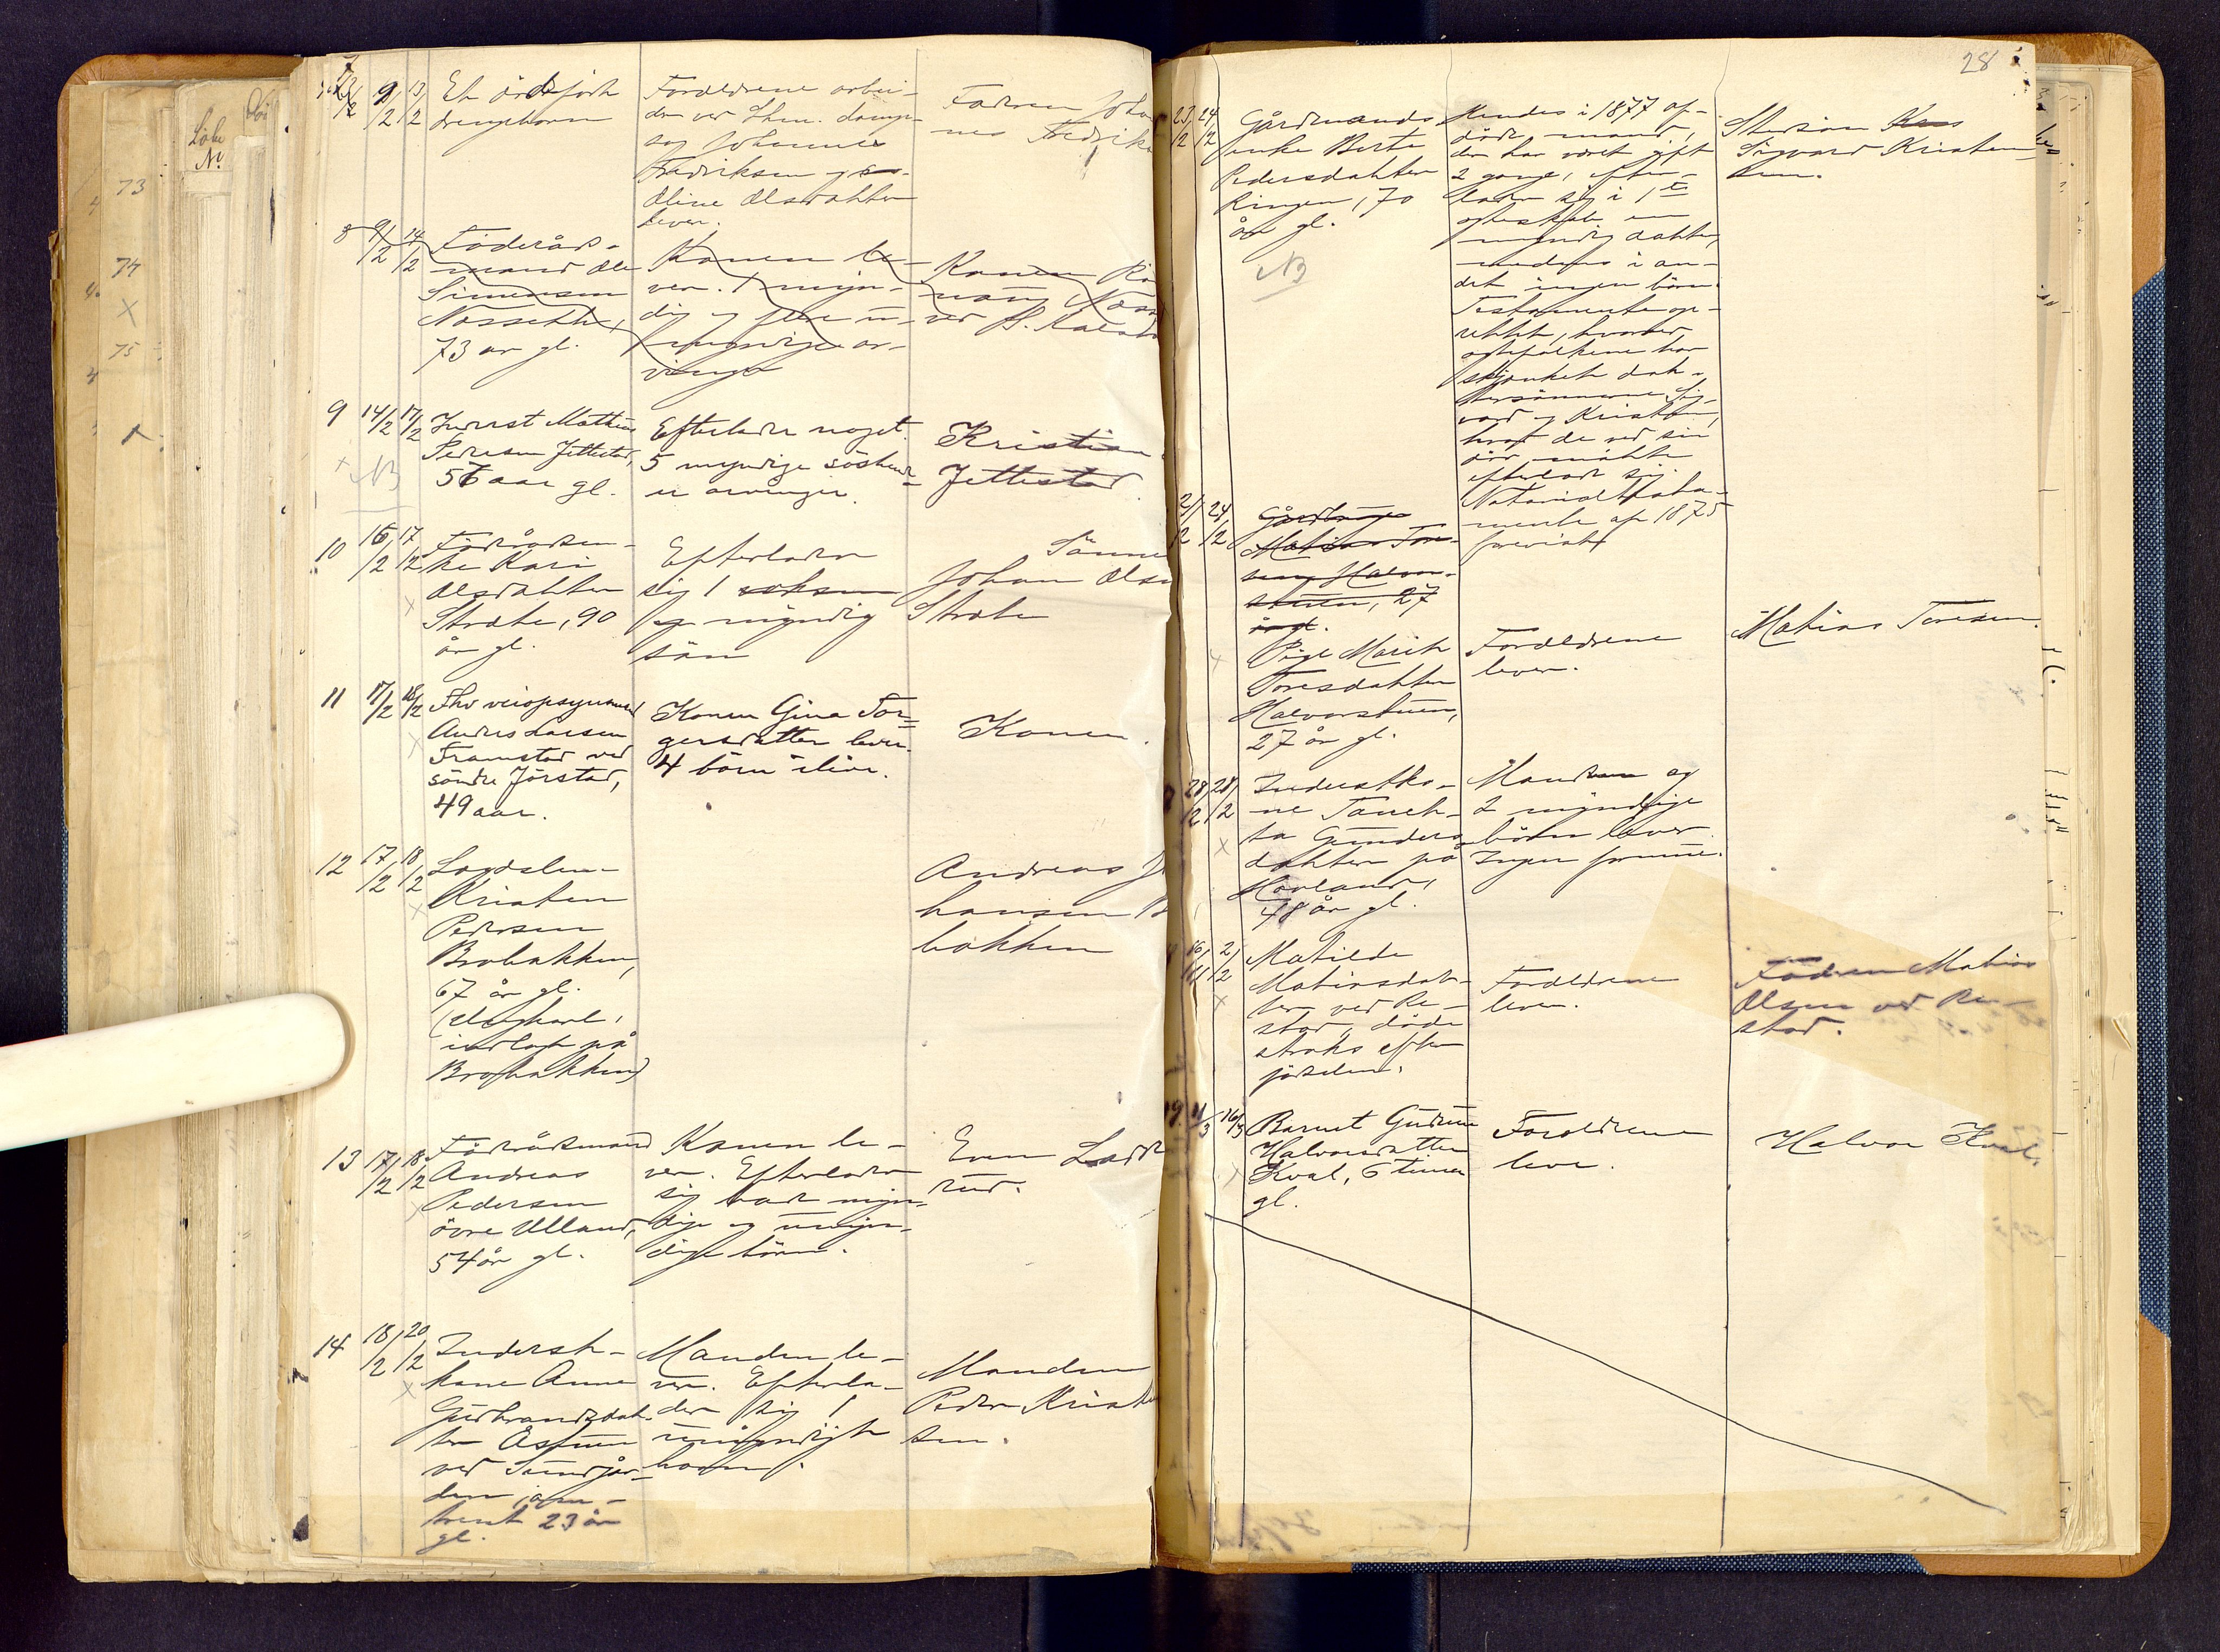 9/2 13/2
Et dødfødt
drengebarn
Forældrene arbei-
der ved Lhm. damp-
sag Johannes
Fredriksen og
Oline Olsdatter
lever.
Faderen Johan
nes Fredrik
8 9/2 14/2
Föderåds-
mand Ole
Simensen
73 år gl.
Konen le-
ver. 1 myn-
dig og flere u-
myndige ar-
vinger
Konen
9 14/2 17/2
Inderst Mathias
Pedersen Jettestad,
56 aar gl.
NB
Efterlader noget.
5 myndige söskende
er arvinger.
Kristian
Jettestad
10 16/2 17/2
Föderådsen-
ke Kari
Olsdatter
Stræte, 90
år gl.
Efterlader
sig 1 voksen
og myndig
sön
Sönnen
Johan Olsen
Stræte
11 17/2 18/2
Fhv veiopsynsmand
Anders Larsen
Framstad ved
söndre Jörstad,
49 aar.
Konen Gina Tor-
gersdatter lever.
4 börn ilive.
Konen.
12 17/2 18/2
Lægdslem
Kristen
Pedersen
Brobakken,
67 år gl.
(Ungkarl,
indlagt på
Brobakken)
Andreas Jo
hansen B
bakken
13 17/2 18/2
Föderådsmand
Andreas
Pedersen
övre Ulland,
54 år gl.
Konen le-
ver. Efterlader
sig både myn-
dige og umyn-
dige börn.
Even Ladde
rud.
14 18/2 20/2
Inderst-
kone Anne
Gudbrandsdat-
ter Åstuen
ved Sundgår-
den, om-
trent 23 år
gl.
Manden le-
ver. Efterla-
der sig 1
umyndigt
barn.
Manden
Peder Krist
sen.
28
23/2 24/2
Gårdmands
enke Berte
Pedersdatter
Ringen, 70
år gl.
NB
Hendes i 1877 af-
döde mand,
der har været gift
2 gange, efter-
lader sig i 1ste
ægteskab en
myndig datter,
medens i an-
det ingen börn.
Testamente op-
rettet, hvorved
ægtefolkene har
skjænket dat-
tersönnerne Sig-
vard og Kristian,
hvad de ved sin
död måtte
efterlade sig.
Notarialtesta-
mente af 1875
forevist
Stedsön
Sigvard Kristen-
sen.
21/2 24/2
Gårdbruger
Matias Tore-
sen Halvor-
stuen, 27
år gl.
Pige Marit
Toresdatter
Halvorstuen,
27 år gl.
Forældrene
lever.
Matias Toresen.
28/2 28/2
Inderstko-
ne Taneh-
ta Gunders-
datter på
Hovland,
48 år gl.
Manden og
2 myndige
börn lever.
Ingen formue.
Matilde
Matiasdat-
ter ved Re-
stad, döde
straks efter
födselen.
Forældrene
lever.
Faderen Matias
Olsen ved Re-
stad.
19. 11/3 16/3
Barnet Gudrun
Halvorsdatter
Kval, 6 timer
gl.
Forældrene
lever.
Halvor Kval.
Löbe
No
73
74
75